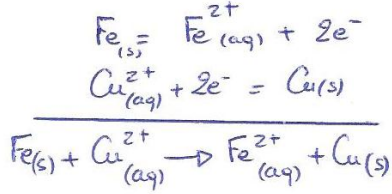 Fe(s) = Fe²⁺(aq) + 2e⁻
Cu²⁺(aq) + 2e⁻ = Cu(s)
Fe(s) + Cu²⁺(aq) → Fe²⁺(aq) + Cu(s)